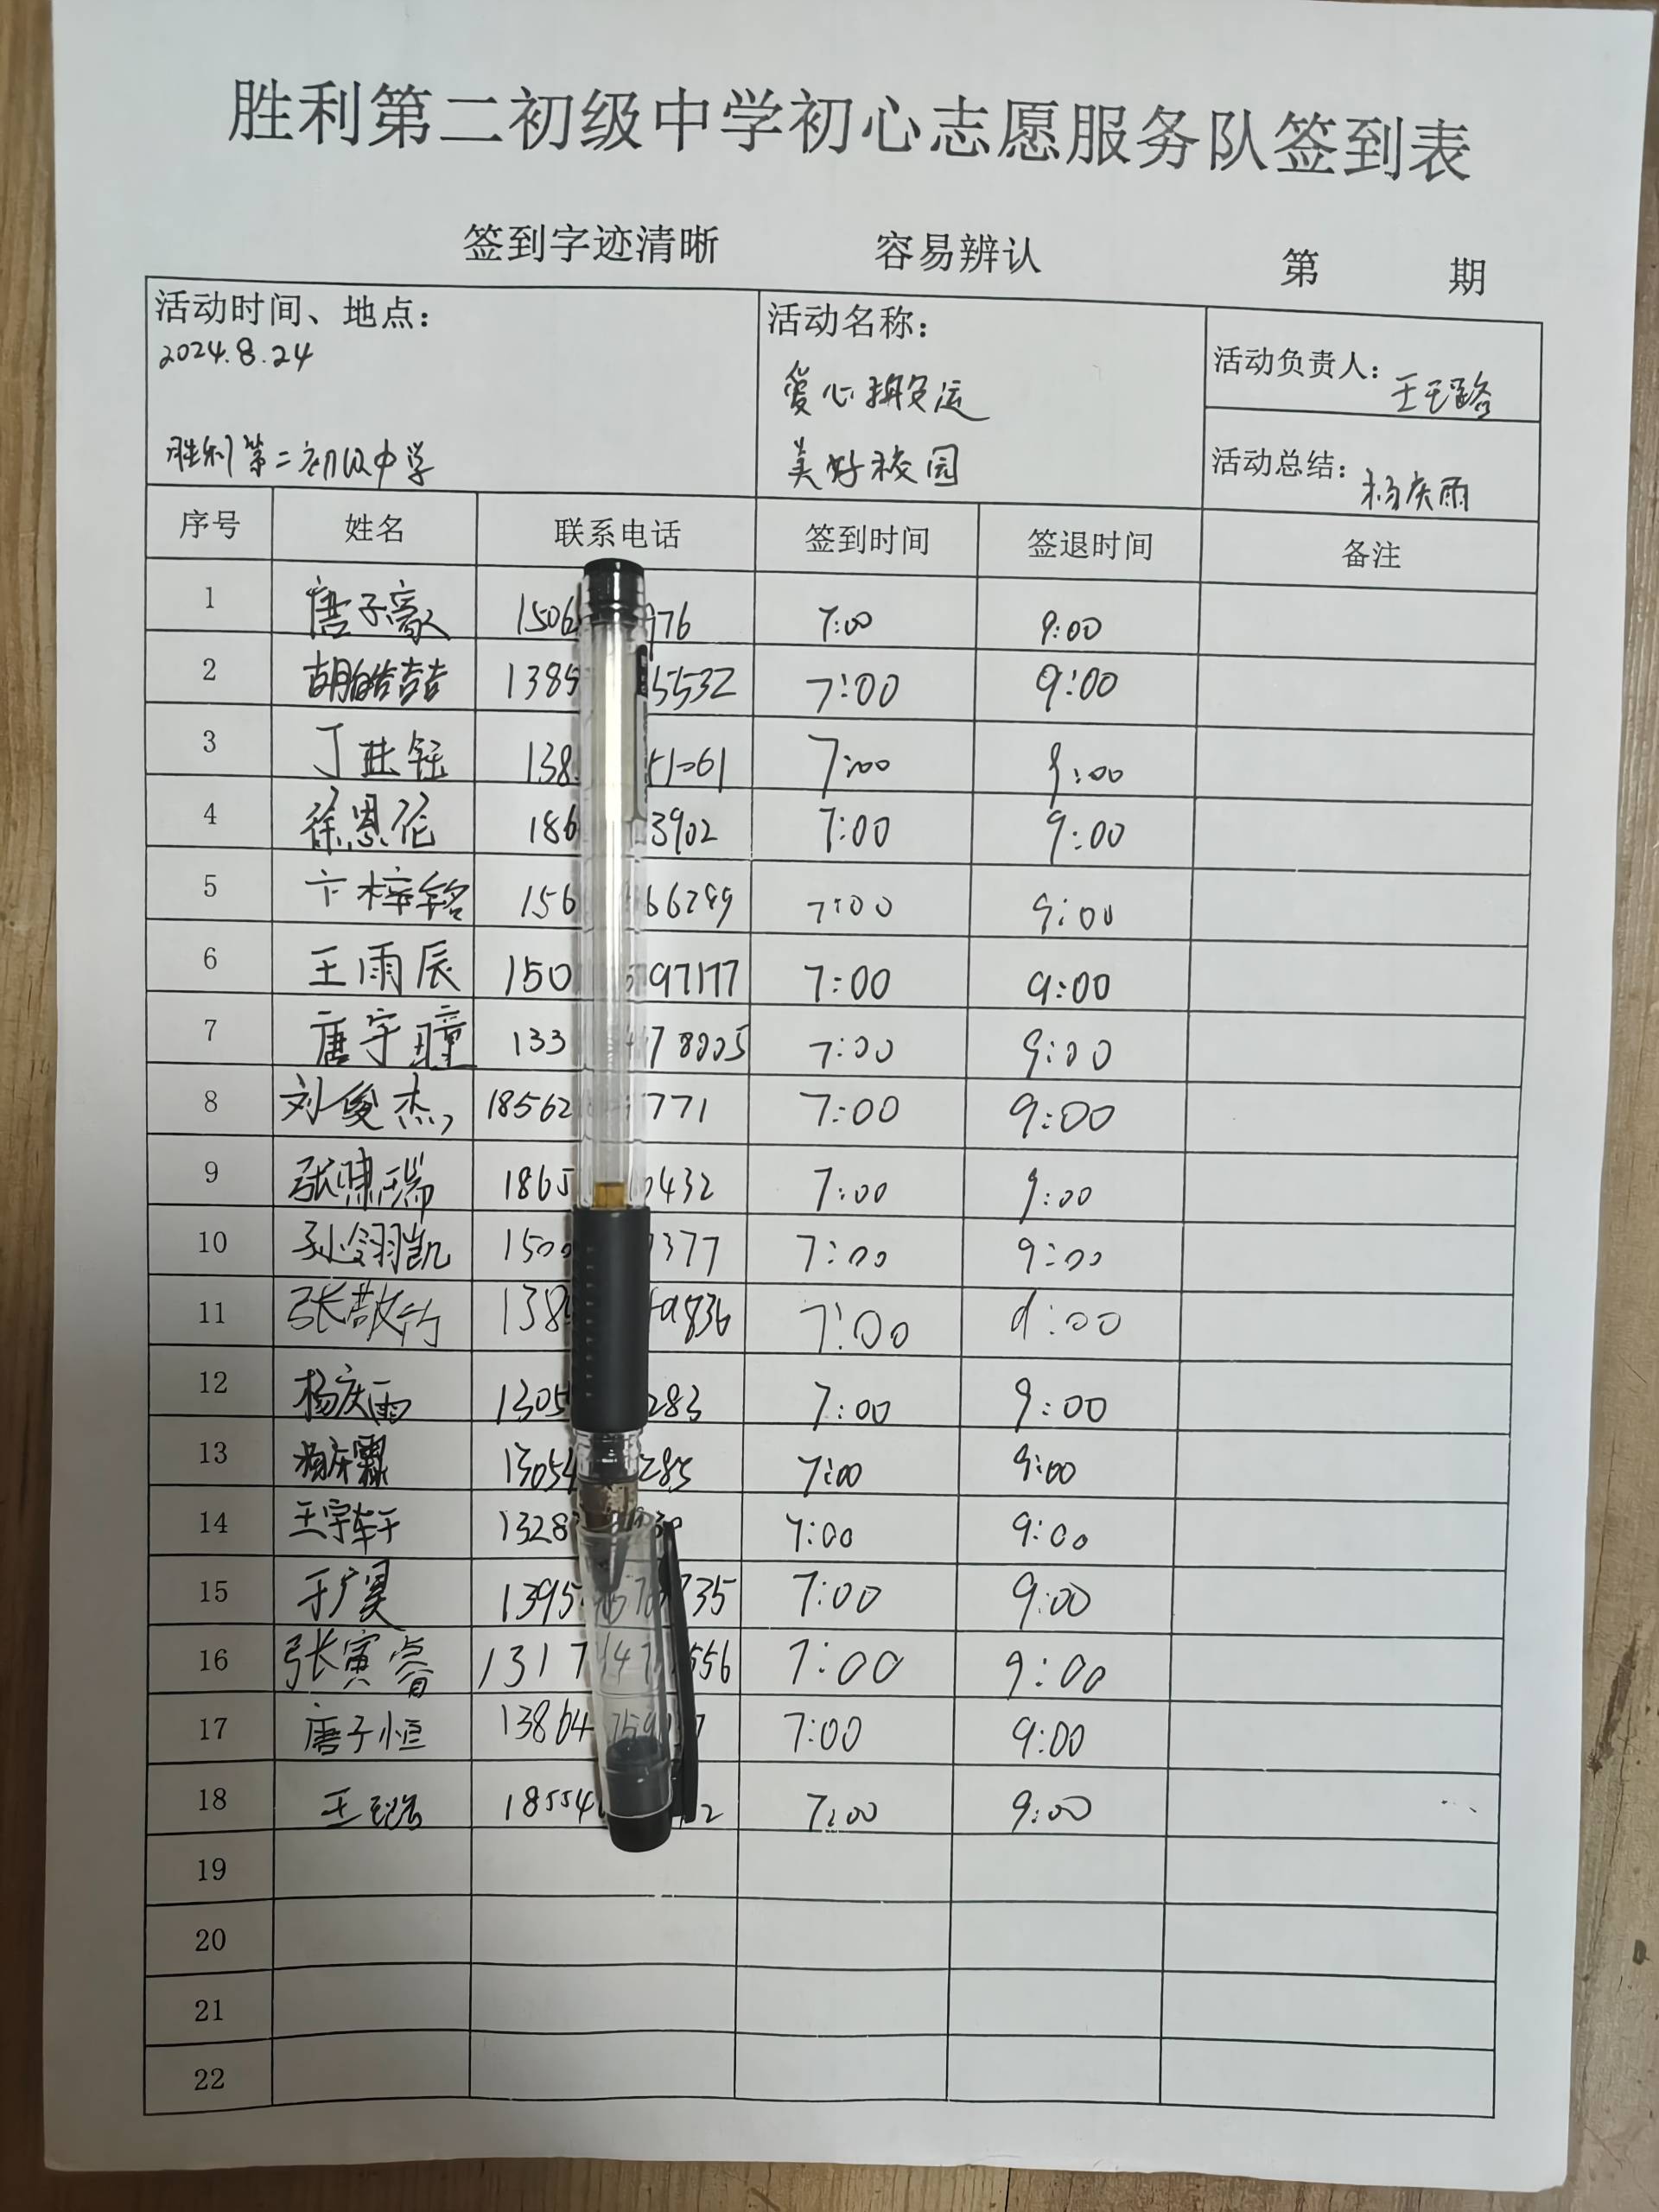 胜利第二初级中学初心志愿服务队签到表
签到字迹清晰 容易辨认 第 期
活动时间、地点： 活动名称： 活动负责人：
2024.8.24
爱心搬运
胜利第二初级中学 美好校园 活动总结：杨庆雨
序号 姓名 联系电话 签到时间 签退时间 备注
1 唐子豪 1506 976 7:00 9:00
2 胡皓喆 1385 5532 7:00 9:00
3 丁 138 51061 7:00 9:00
4 徐恩伦 186 3902 7:00 9:00
5 卞梓铭 156 66299 7:00 9:00
6 王雨辰 150 97177 7:00 9:00
7 唐宇瞳 133 78005 7:00 9:00
8 刘俊杰 18562 771 7:00 9:00
9 张 瑞 1865 0432 7:00 9:00
10 孙翎凯 1500 1377 7:00 9:00
11 张 竹 138 9836 7:00 9:00
12 杨庆雨 1305 283 7:00 9:00
13 杨庆霖 13054 285 7:00 9:00
14 王宇轩 1328 30 7:00 9:00
15 于广昊 1395 735 7:00 9:00
16 张寅睿 1317 47 556 7:00 9:00
17 唐子恒 13864 759 7 7:00 9:00
18 王 18554 2 7:00 9:00
19
20
21
22